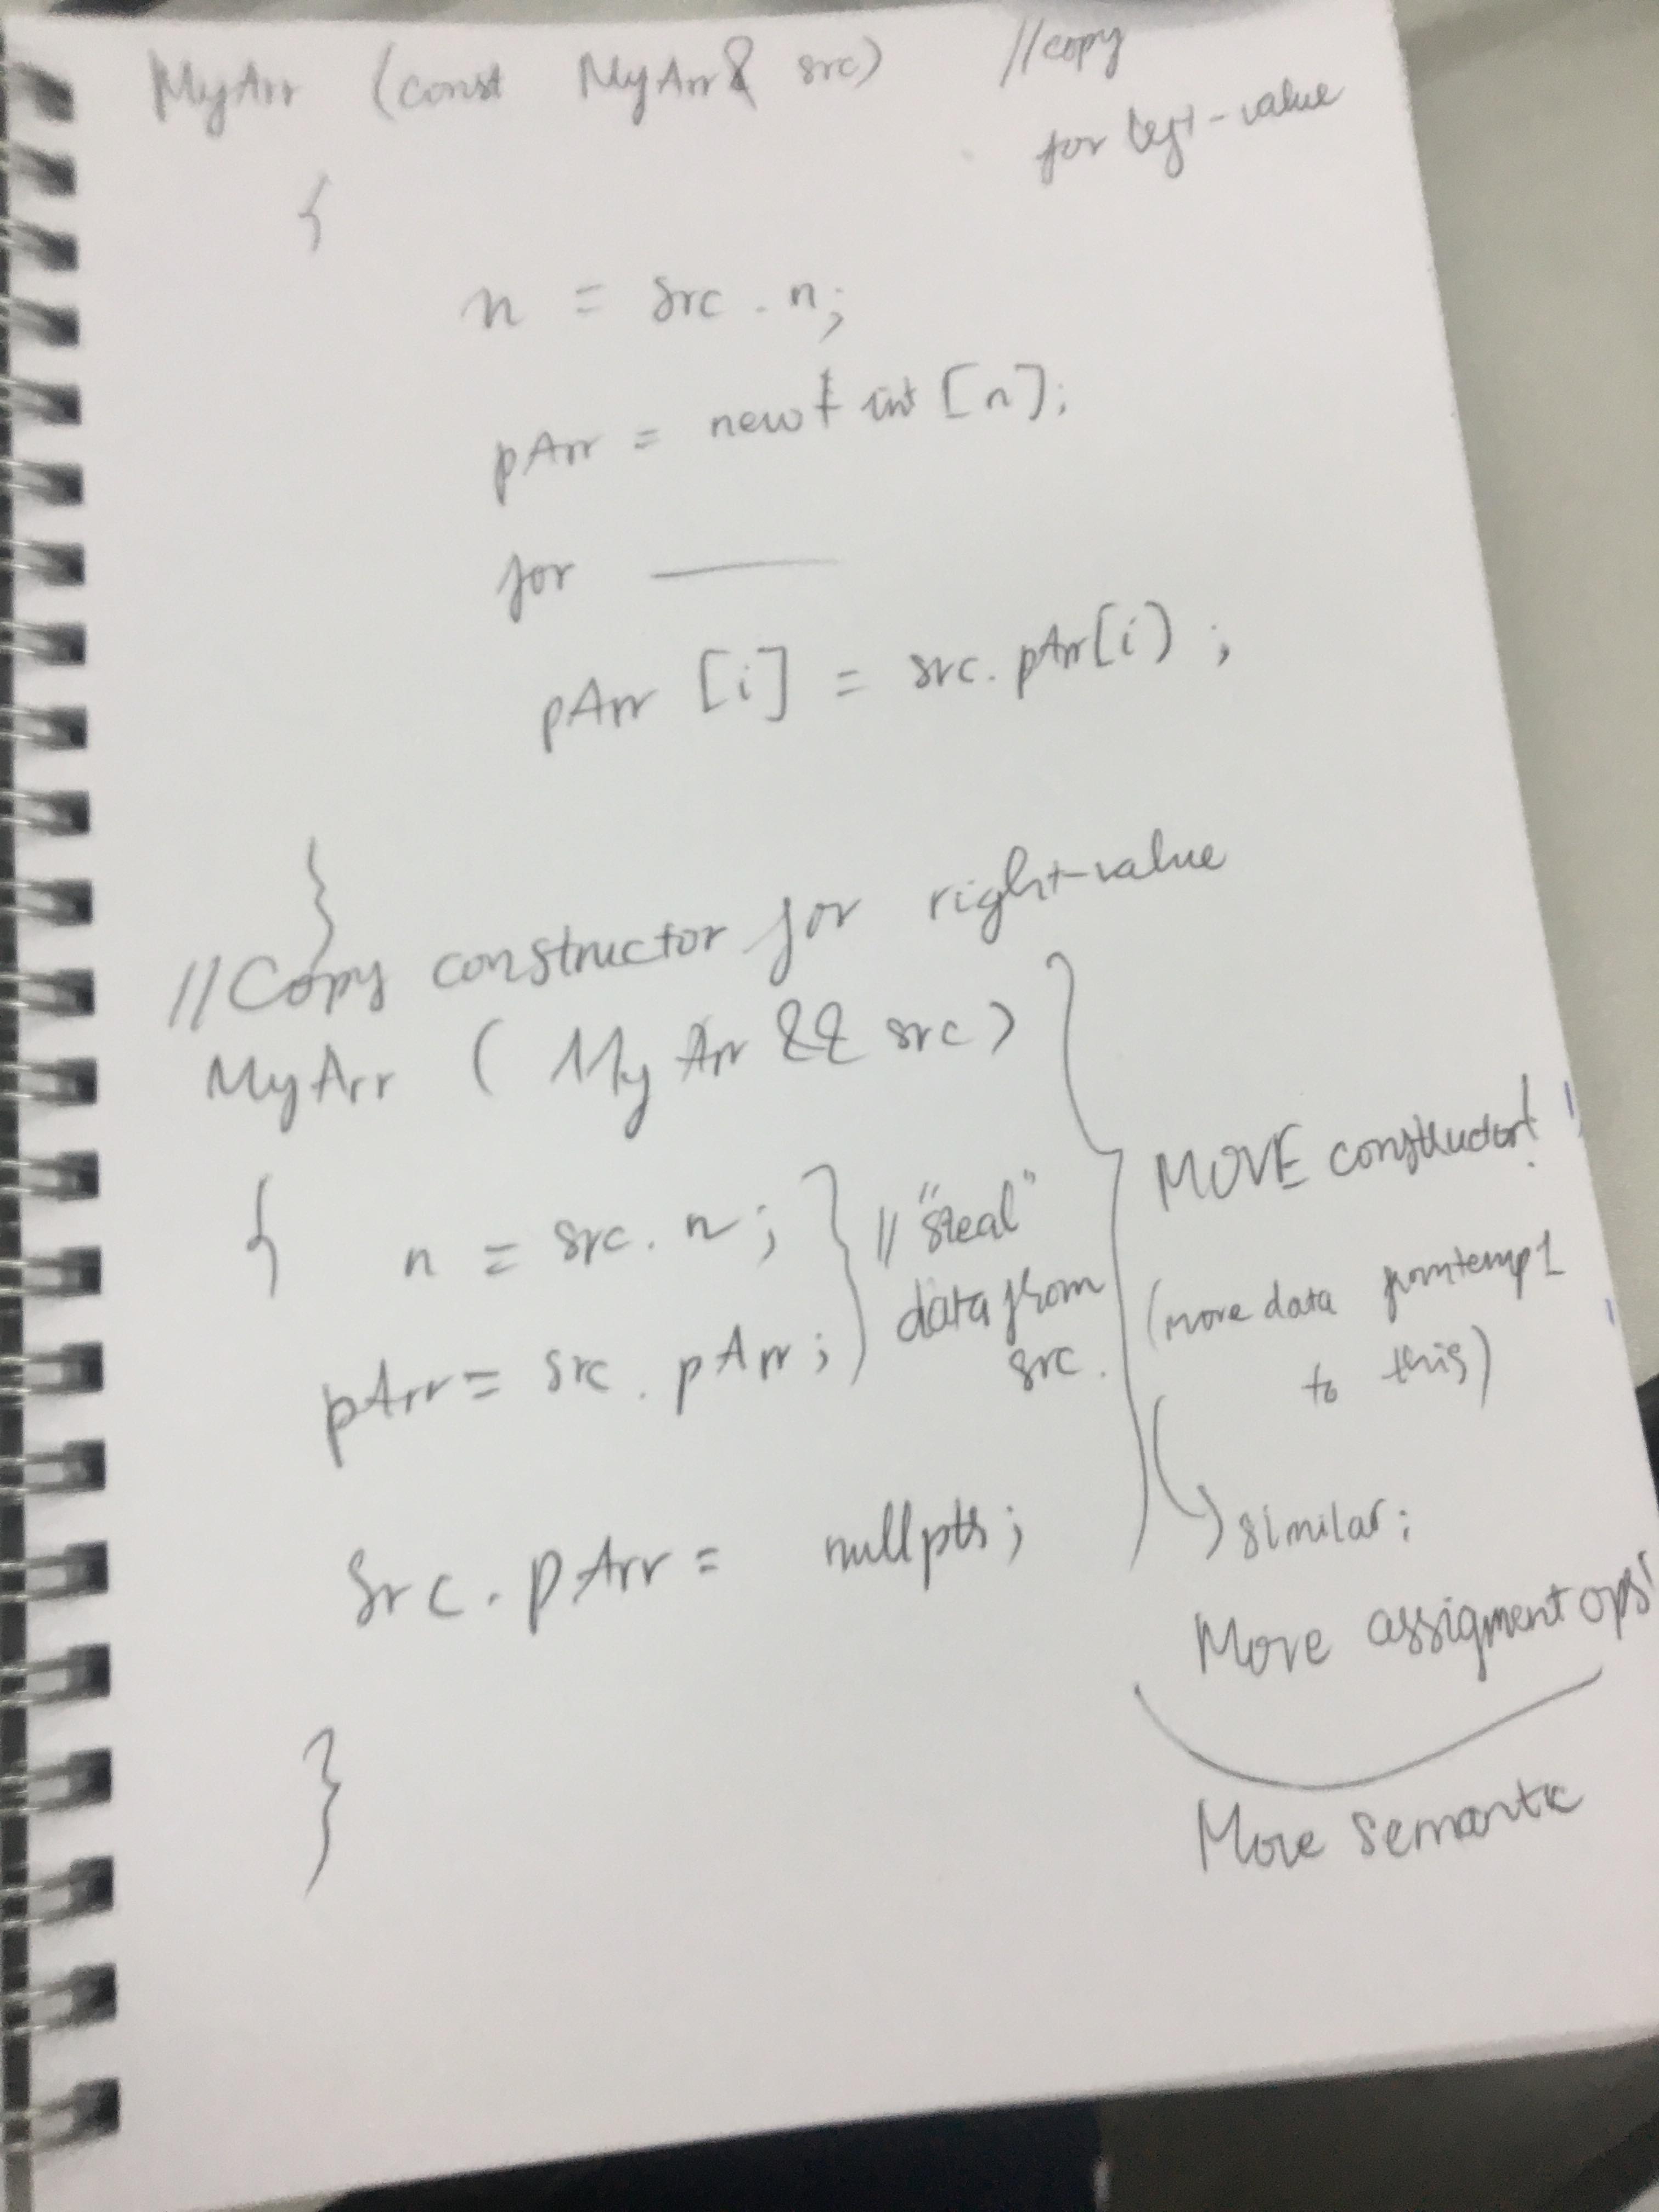 MyArr (const MyArr& src) //copy
for left-value
{
n = src.n;
pArr = new int [n];
for
pArr [i] = src.pArr[i);
}
//Copy constructor for right-value
MyArr (MyArr && src)
{
n = src.n; // "steal"
data from
src.
pArr = src.pArr;
src.pArr = nullptr;
}
MOVE constructor!
(move data from temp1
to this)
similar:
Move assigment ops!
Move semantic